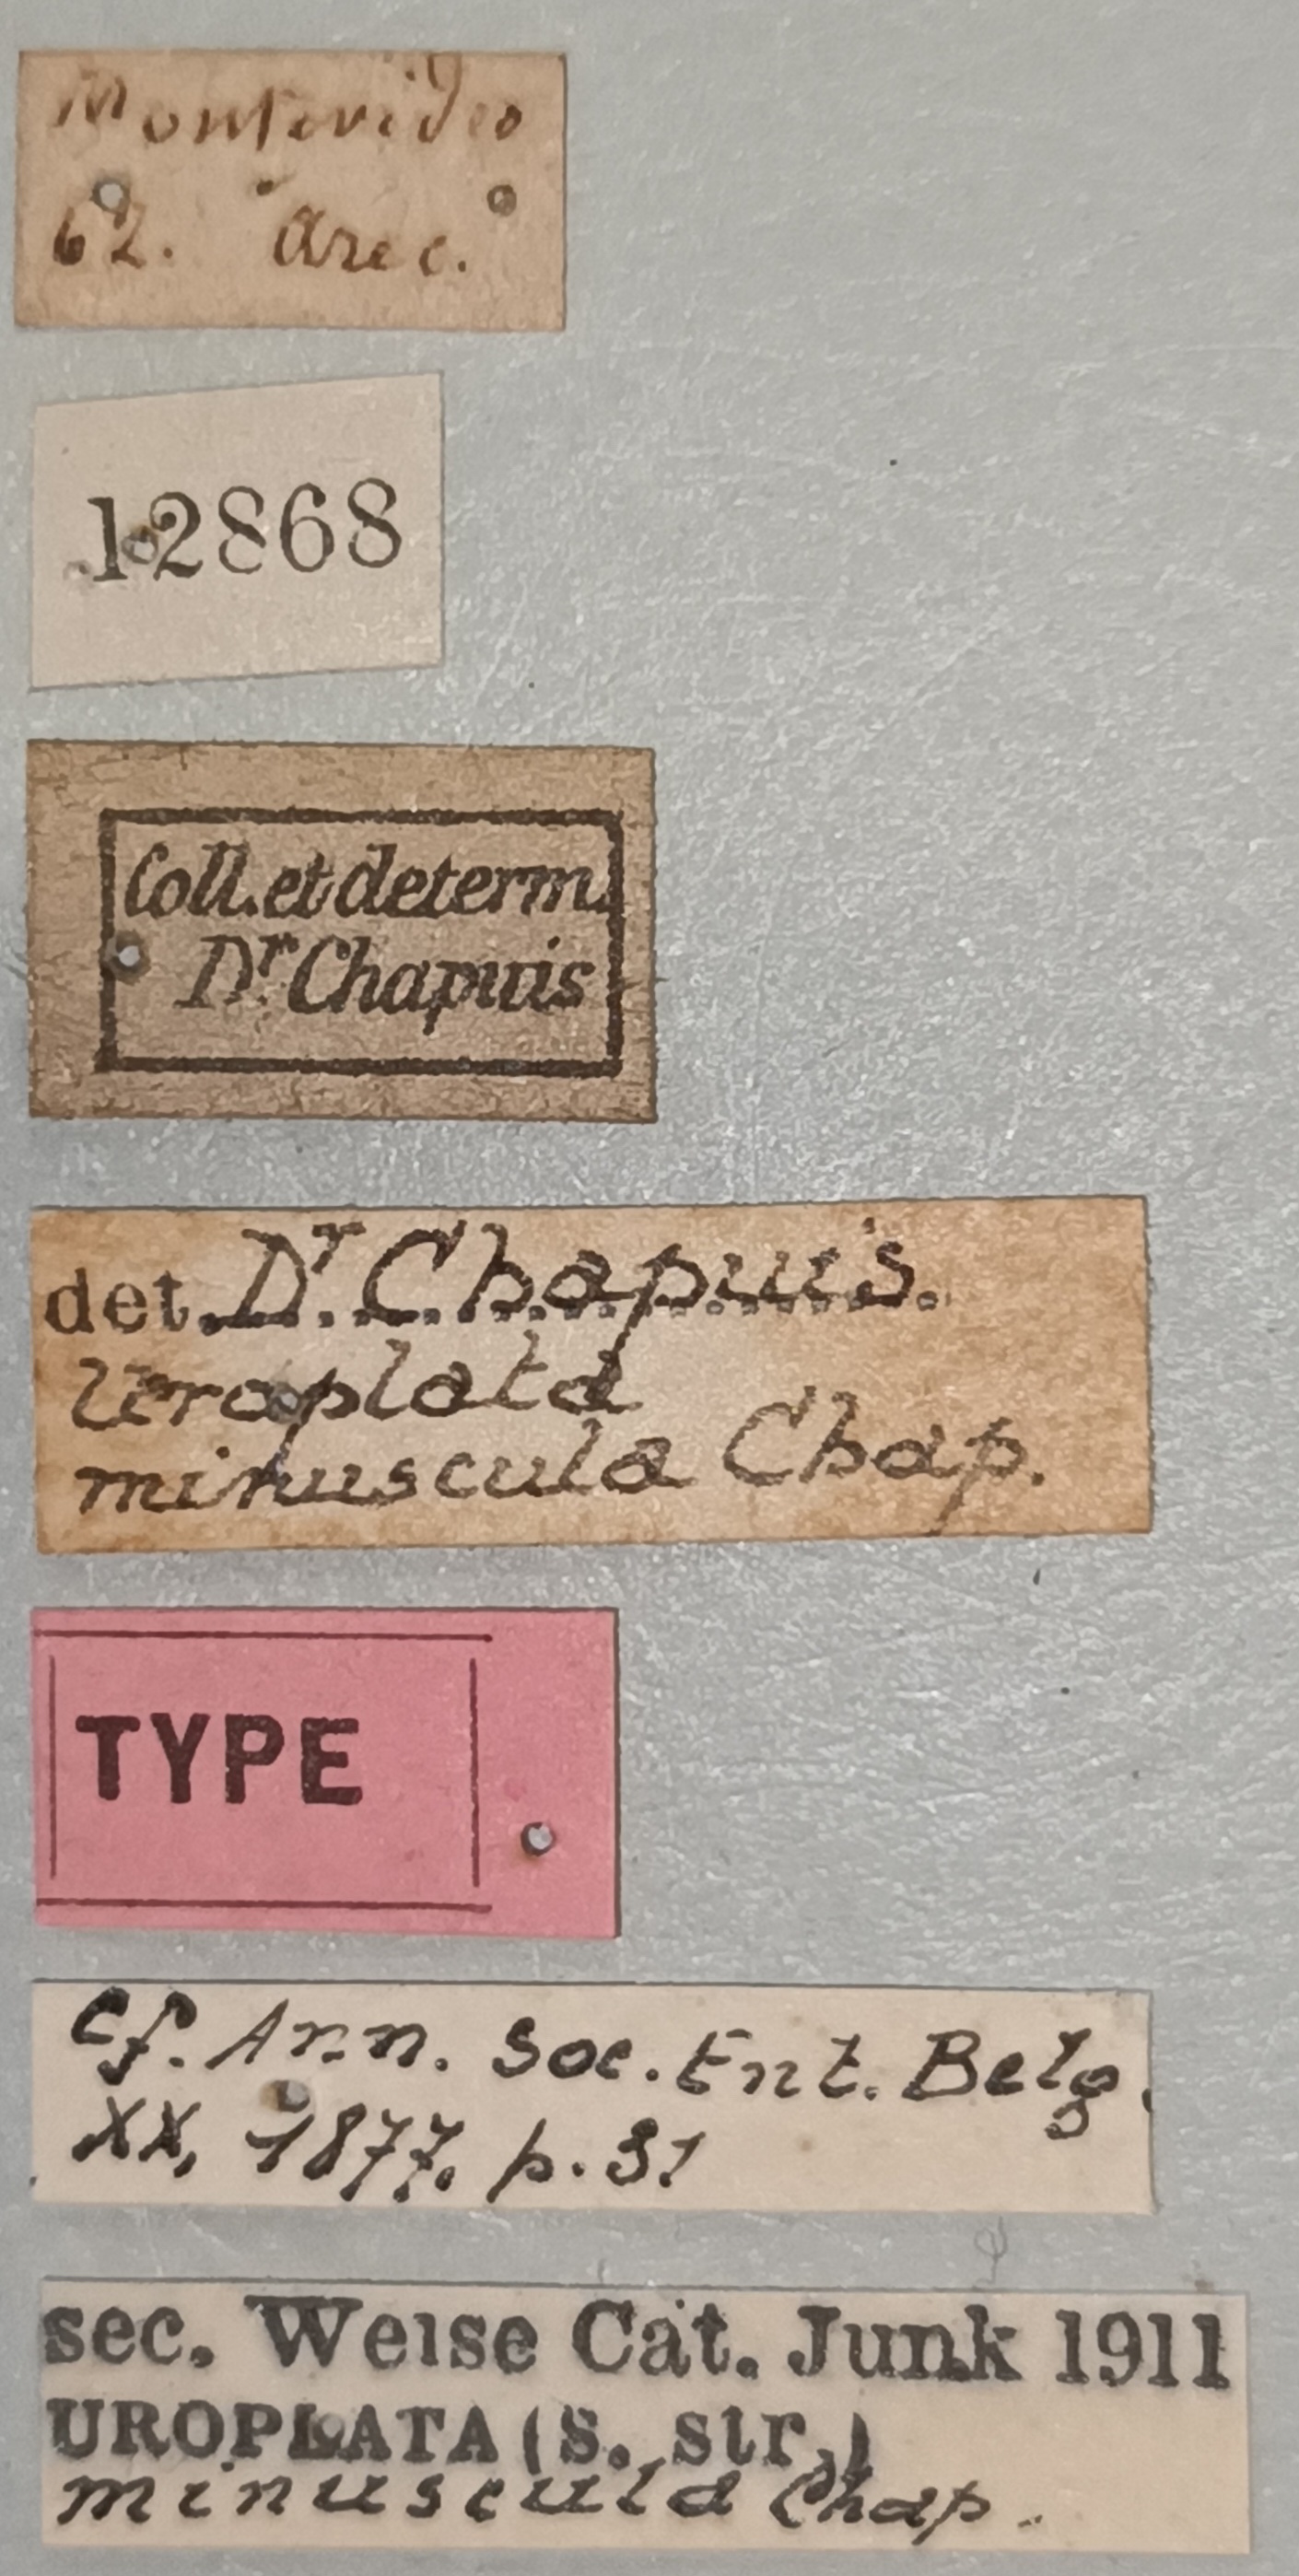 Montevideo
62. Arec.
12868
Coll. et determ.
Dr. Chapuis
det. Dr. Chapuis.
Uroplata
minuscula Chap.
TYPE
cf. Ann. Soc. Ent. Belg.
XX, 1877. p. 31
sec. Weise Cat. Junk 1911
UROPLATA (S. str.)
minuscula Chap.